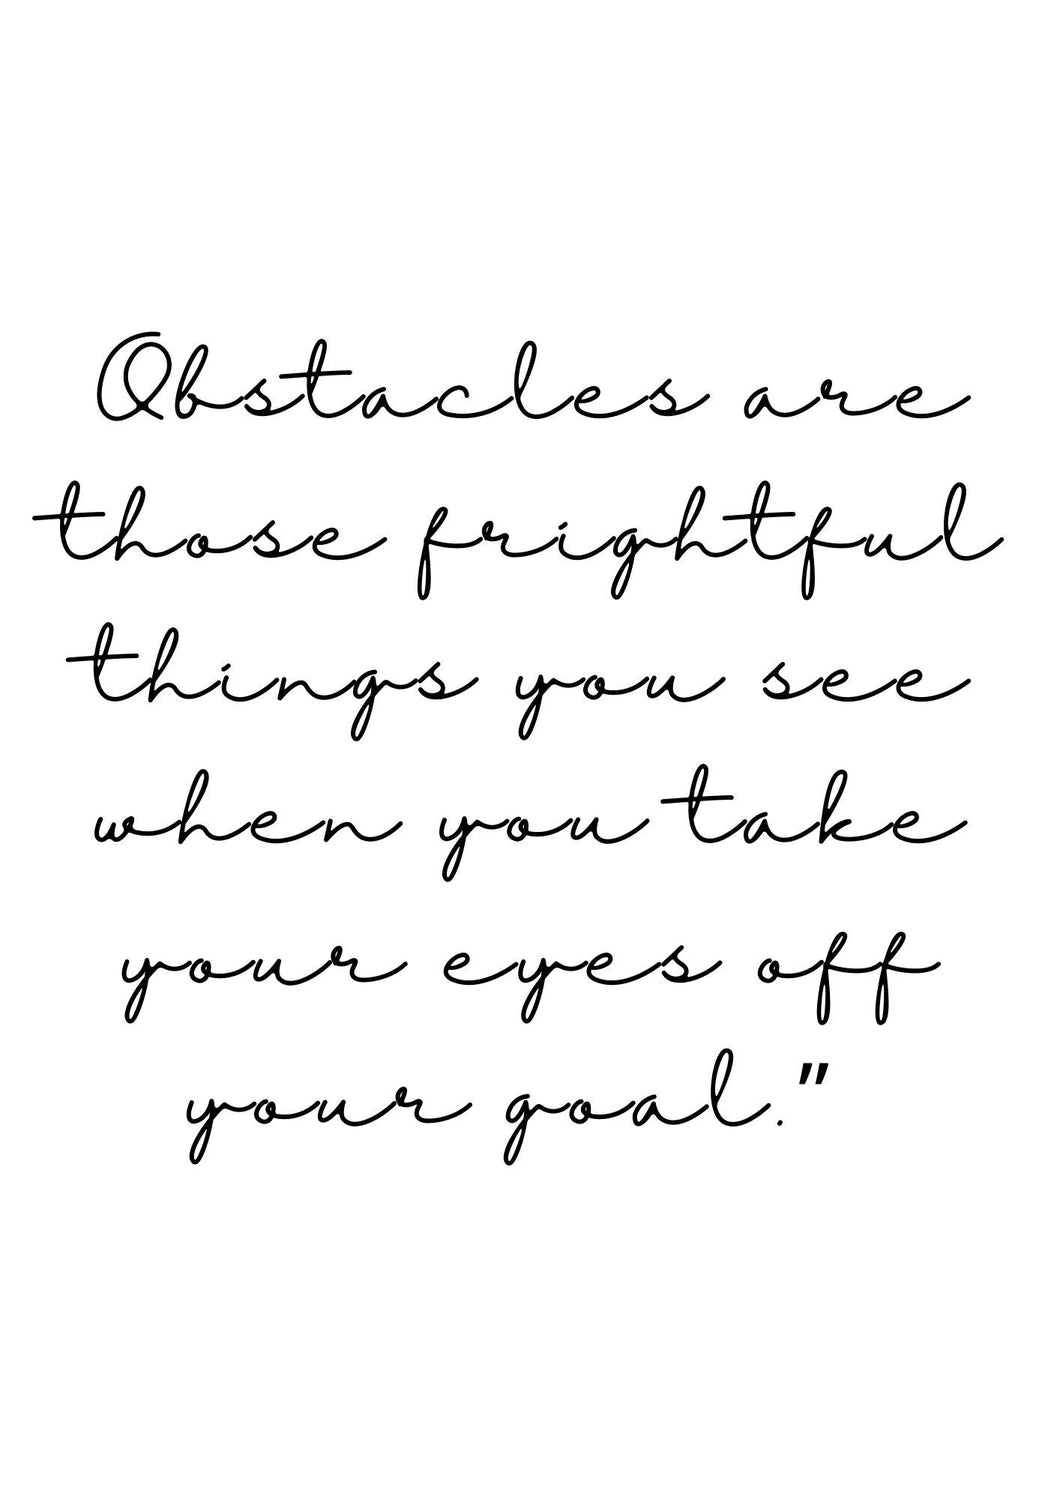 Obstacles are
those frightful
things you see
when you take
your eyes off
your goal."